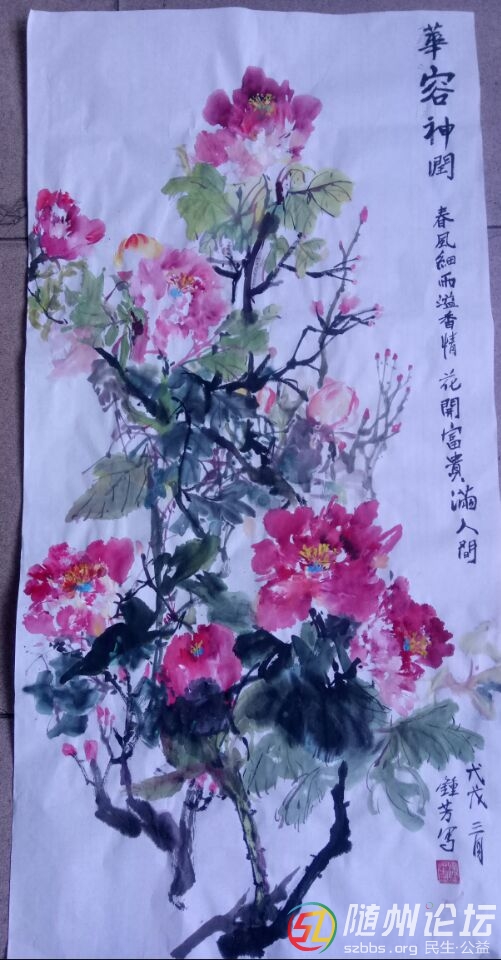 華容神潤
春風細雨溢香情 花開富貴滿人間
戊戌 三月
鍾芳写
随州论坛
szbbs.org 民生·公益